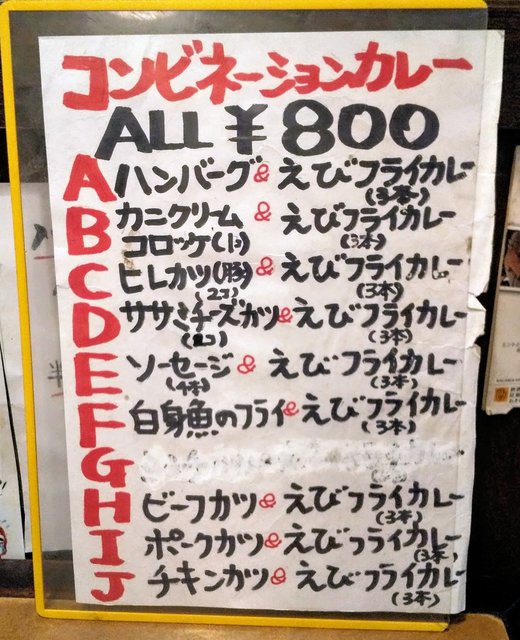 コンビネーションカレー
ALL ¥800
A ハンバーグ & えびフライカレー
(3本)
B カニクリーム & えびフライカレー
コロッケ(1コ) (3本)
C ヒレカツ(豚) & えびフライカレー
(2コ) (3本)
D ササミチーズカツ & えびフライカレー
(3本)
E ソーセージ & えびフライカレー
(4本) (3本)
F 白身魚のフライ & えびフライカレー
(3本)
G
H ビーフカツ & えびフライカレー
(3本)
I ポークカツ & えびフライカレー
(3本)
J チキンカツ & えびフライカレー
(3本)